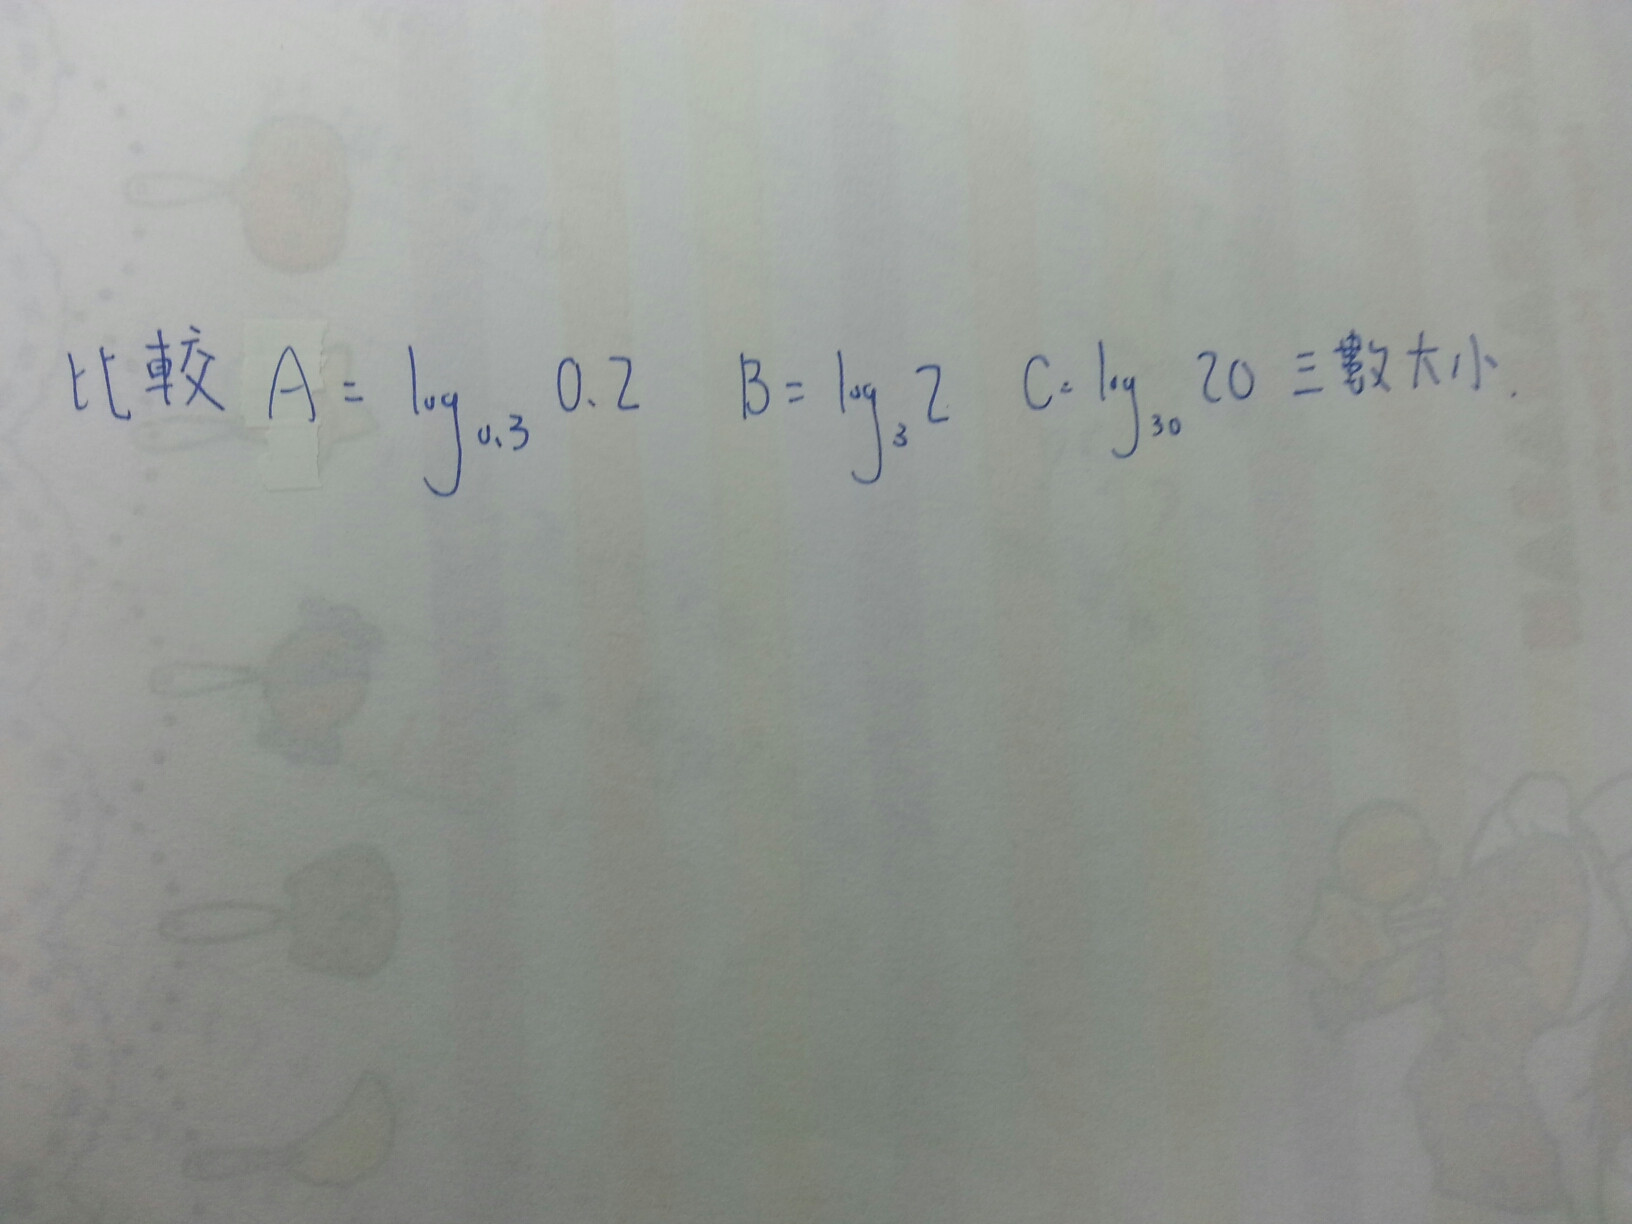 比較 A = log₀.₃ 0.2 B = log₃ 2 C = log₃₀ 20 三數大小.